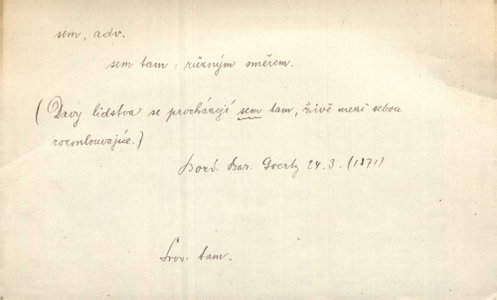 sem, adv.
sem tam : různým směrem.
(Davy lidstva se procházejí sem tam, živě mezi sebou
rozmlouvajíce.)
Bar. Goertz 24. 3. (1871)
Srov. tam.